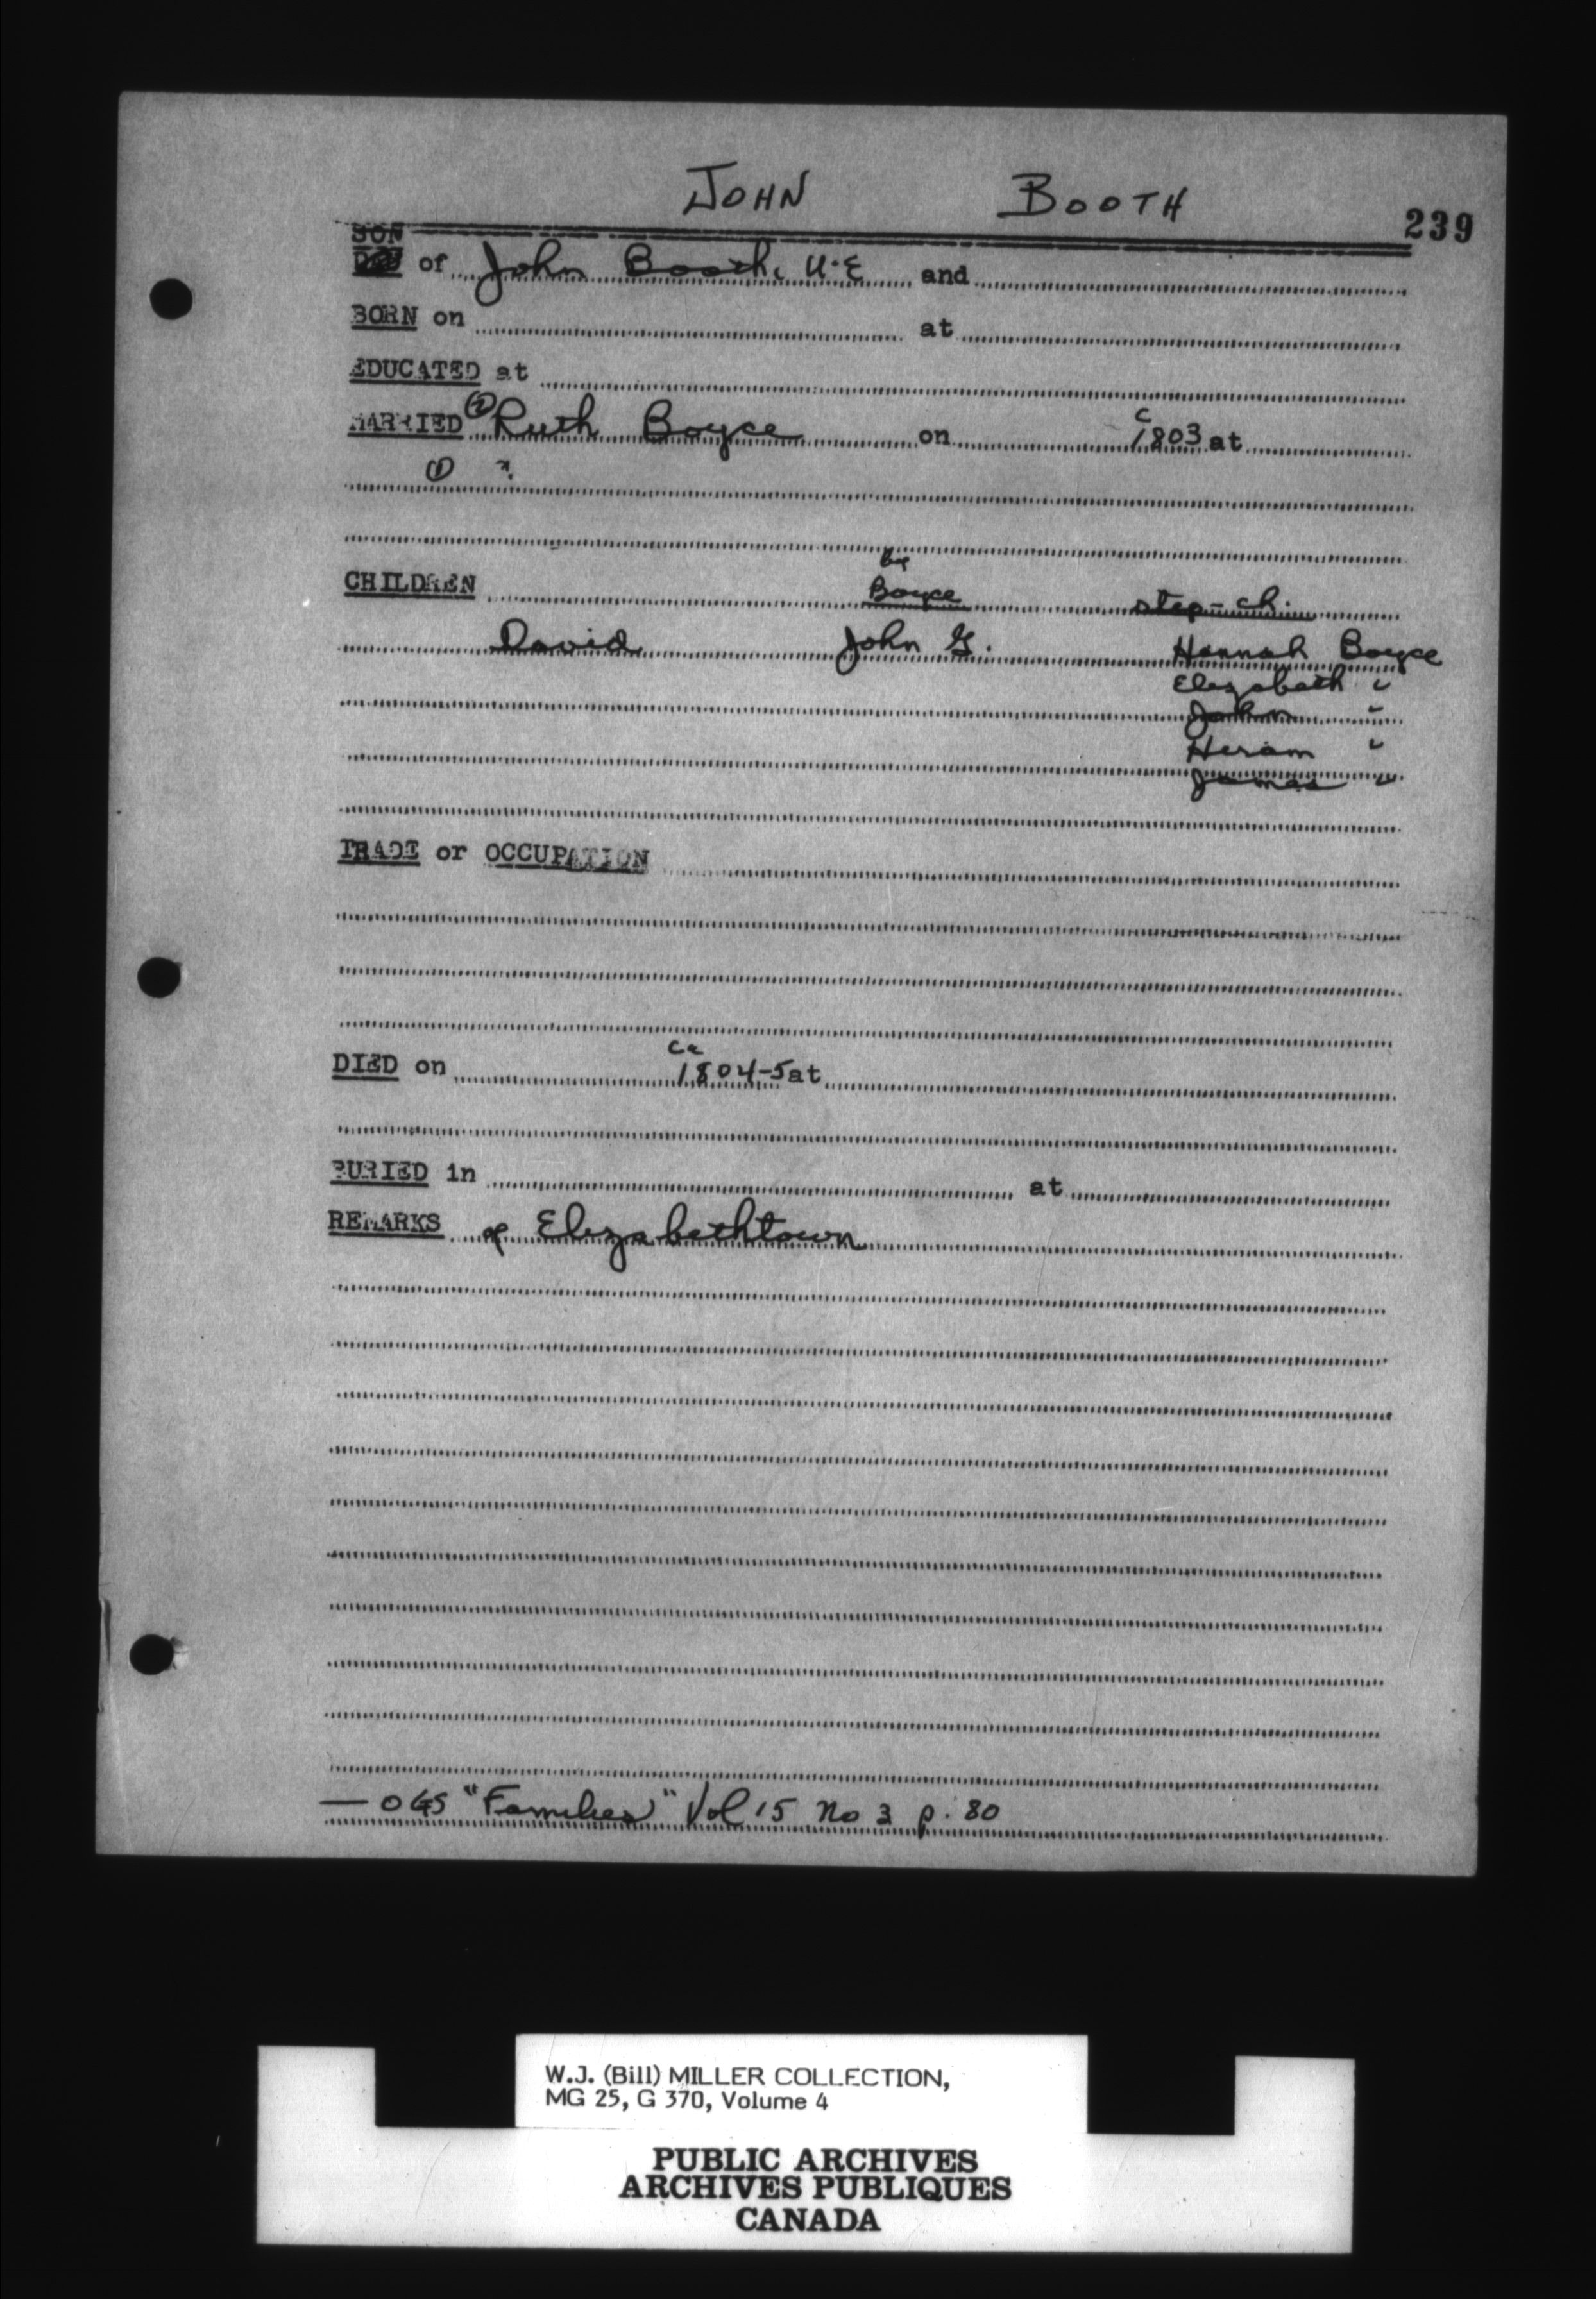 JOHN BOOTH
239
SON
of John Booth, U.E and
BORN on at
EDUCATED at
MARRIED ② Ruth Boyce on c 1803 at
① ?
by
CHILDREN Boyce step-ch.
David John G. Hannah Boyce
Elizabeth "
John "
Hiram "
James "
TRADE or OCCUPATION
ca
DIED on 1804-5 at
BURIED in at
REMARKS of Elizabethtown
— OGS "Families" Vol 15 No 3 p. 80
W.J. (Bill) MILLER COLLECTION,
MG 25, G 370, Volume 4
PUBLIC ARCHIVES
ARCHIVES PUBLIQUES
CANADA